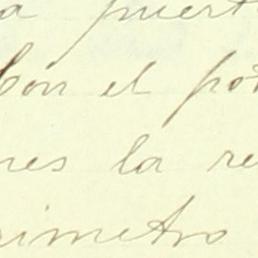 a puert
Con el po
nes la re
rimetro